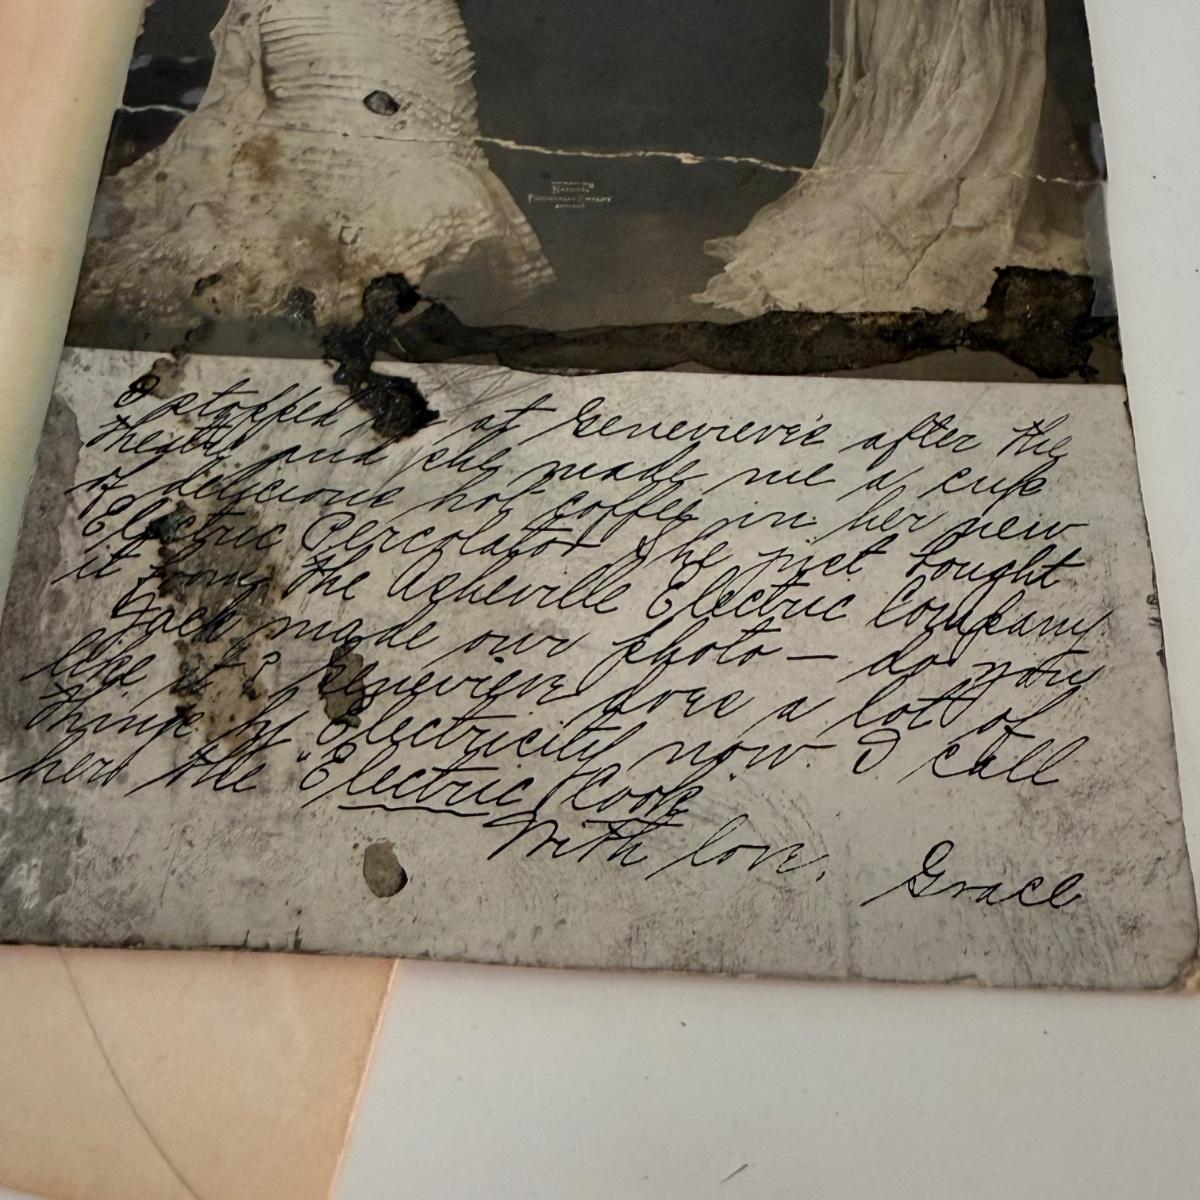 I stopped at Genevieve's after the
theatre and she made me a cup
of delicious hot coffee in her new
Electric Percolator. She just bought
it from the Asheville Electric Company
Jack made our photo — do you
like it? Genevieve does a lot of
things by Electricity now. I call
her the "Electric Cook
With love,
Grace